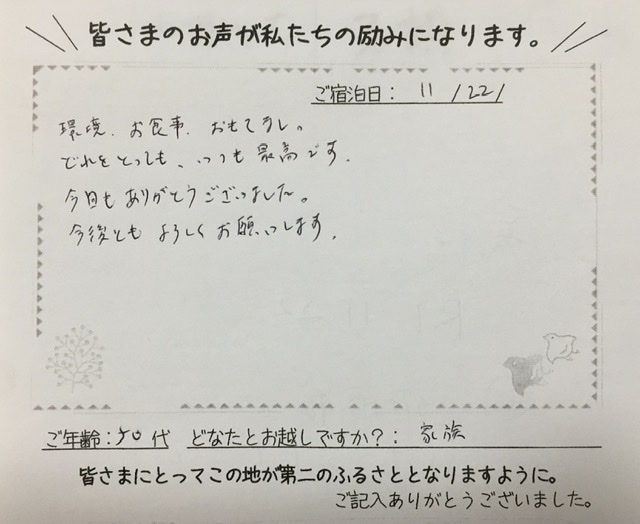 皆さまのお声が私たちの励みになります。
ご宿泊日： 11 /22/
環境、お食事、おもてなし。
どれをとっても、いつも最高です。
今回もありがとうございました。
今後とも よろしくお願いします。
ご年齢：50代 どなたとお越しですか？： 家族
皆さまにとってこの地が第二のふるさととなりますように。
ご記入ありがとうございました。